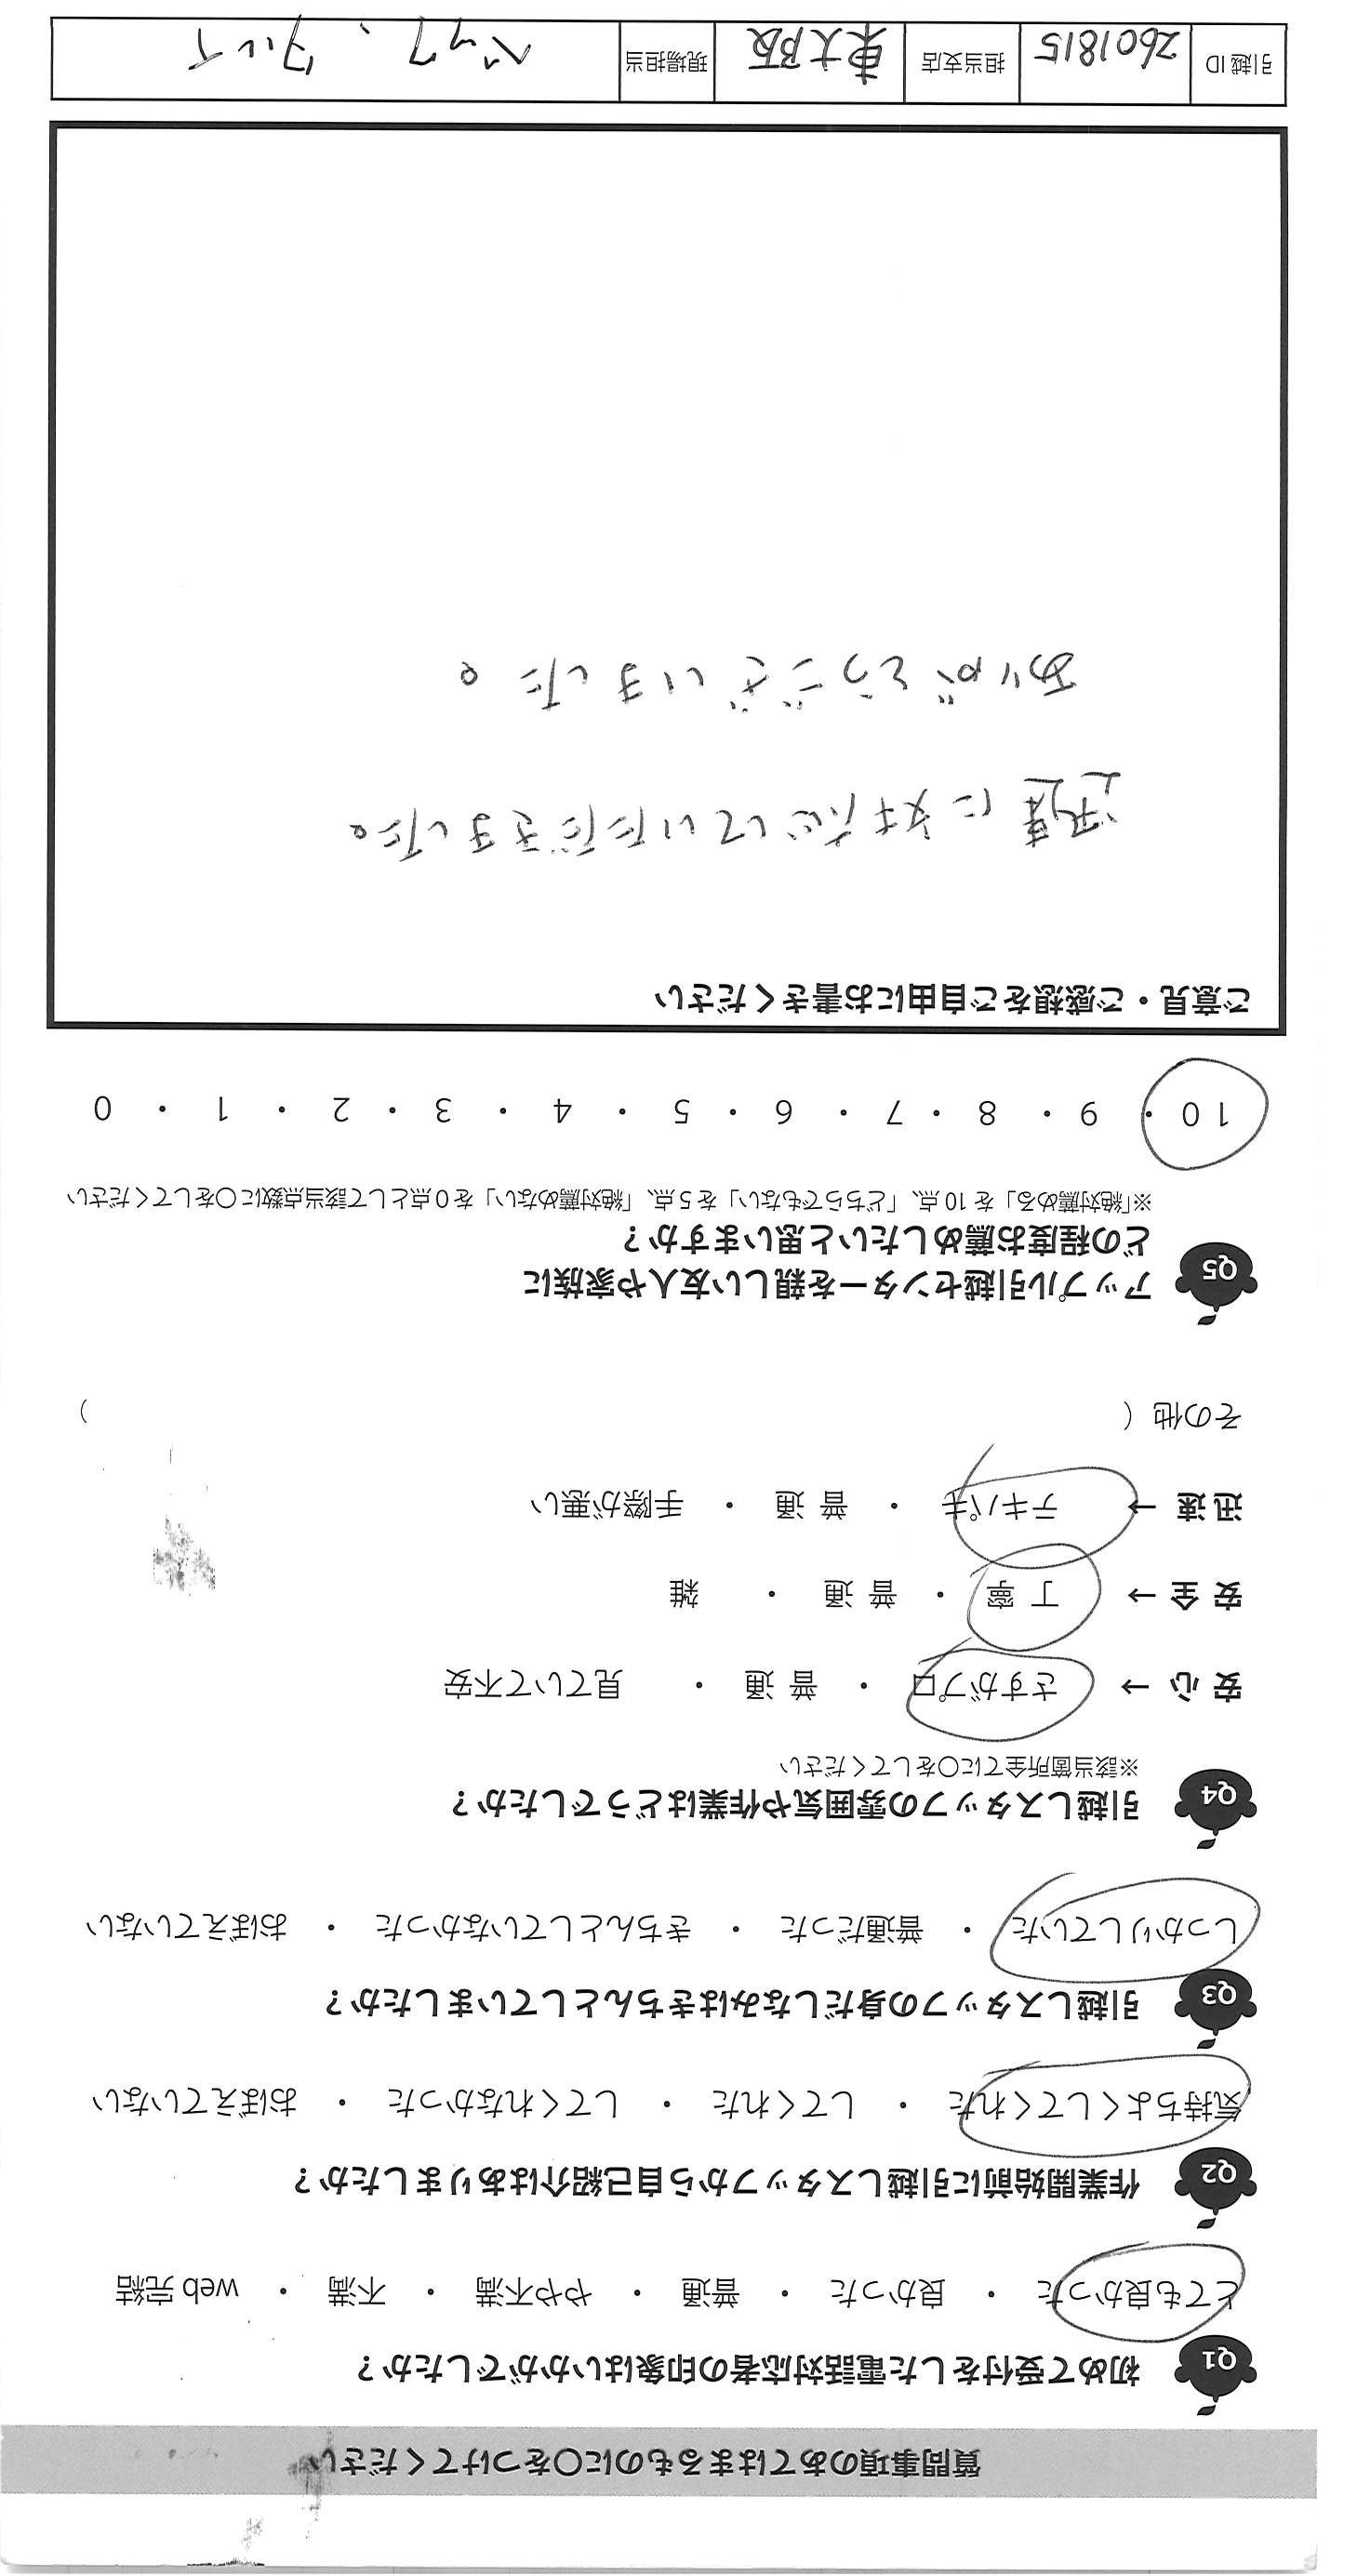 質問事項のあてはまるものに○をつけてください
Q1 初めて受付をした電話対応者の印象はいかがでしたか?
とても良かった ・ 良かった ・ 普通 ・ やや不満 ・ 不満 ・ web完結
Q2 作業開始前に引越しスタッフから自己紹介はありましたか?
気持ちよくしてくれた ・ してくれた ・ してくれなかった ・ おぼえていない
Q3 引越しスタッフの身だしなみはきちんとしていましたか?
しっかりしていた ・ 普通だった ・ きちんとしていなかった ・ おぼえていない
Q4 引越しスタッフの雰囲気や作業はどうでしたか?
※該当箇所全てに○をしてください
安心→ さすがプロ ・ 普通 ・ 見ていて不安
安全→ 丁寧 ・ 普通 ・ 雑
迅速→ テキパキ ・ 普通 ・ 手際が悪い
その他 ( )
Q5 アップル引越センターを親しい友人や家族に
どの程度お薦めしたいと思いますか?
※「絶対薦める」を10点、「どちらでもない」を5点、「絶対薦めない」を0点として該当点数に○をしてください
10 ・ 9 ・ 8 ・ 7 ・ 6 ・ 5 ・ 4 ・ 3 ・ 2 ・ 1 ・ 0
ご意見・ご感想をご自由にお書きください
迅速に対応していただきました。
ありがとうございました。
引越ID 2601815 担当支店 東大阪 現場担当